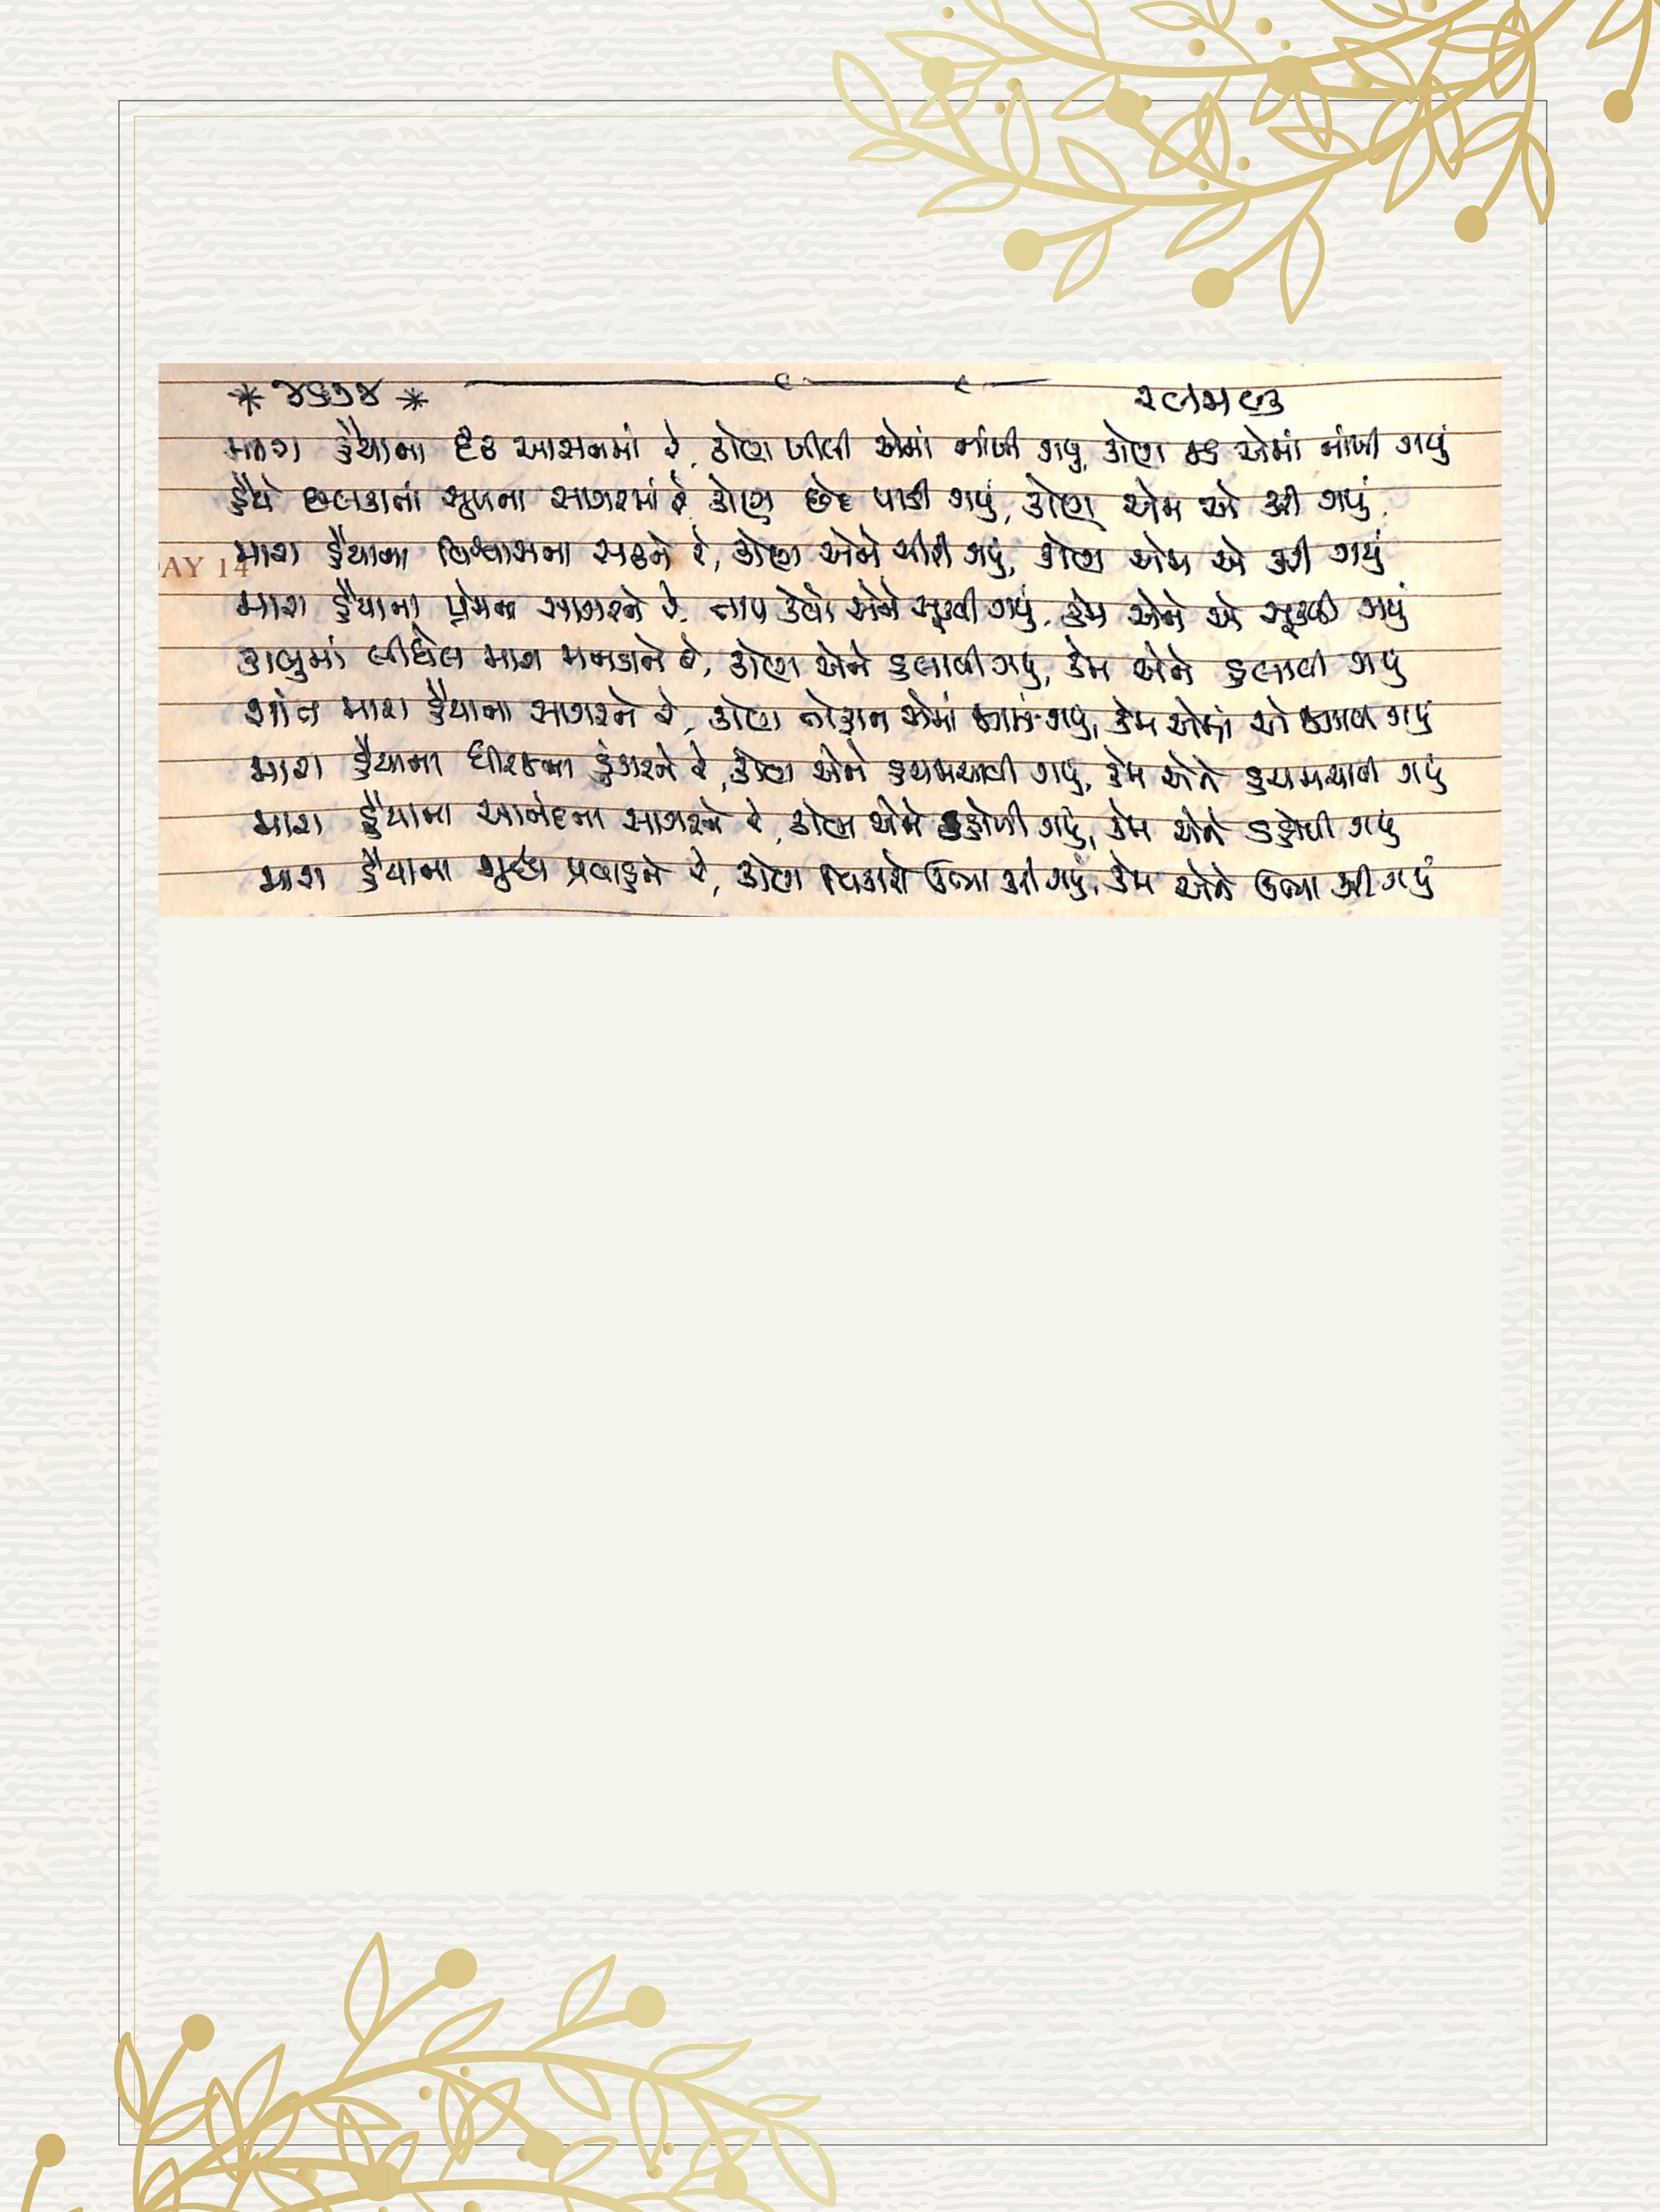 * ૪૬૭૪ *
મારા હૈયાના દૃઢ આસનમાં રે, કોણ ખીલી એમાં નાંખી ગયું, કોણ એમાં નાંખી ગયું
હૈયે છલકાતાં સુખના સાગરમાં રે કોણ છેદ પાડી ગયું, કોણ એમ એ કરી ગયું.
DAY 14
મારા હૈયાના વિશ્વાસના સઢને રે, કોણ એને ચીરી ગયું, કોણ એમ એ કરી ગયું
મારા હૈયાના પ્રેમના સાગરને રે, તાપ કેવો એને સૂકવી ગયું, કેમ એને એ સૂકવી ગયું
કાબુમાં લીધેલ મારા મનડાને રે, કોણ એને હલાવી ગયું, કેમ એને હલાવી ગયું
શાંત મારા હૈયાના સાગરને રે, કોણ તોફાન એમાં ગયું, કેમ એમાં એ ગયું
મારા હૈયાના ધીરજના ડુંગરને રે, કોણ એને હચમચાવી ગયું, કેમ એને હચમચાવી ગયું
મારા હૈયાના આનંદના સાગરને રે, કોણ એને ડહોળી ગયું, કેમ એને ડહોળી ગયું
મારા હૈયાના શુદ્ધ પ્રવાહને રે, કોણ વિકારો ઊભા કરી ગયું, કેમ એને ઊભા કરી ગયું